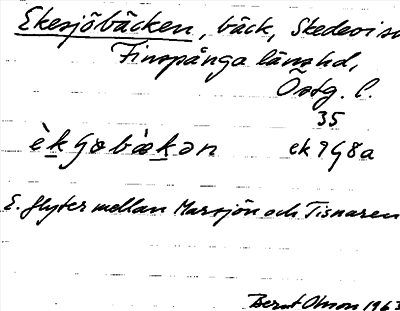 Ekesjöbäcken, bäck, Skedevi sn
Finspånga länshd,
Östg. l.
35
èkʃobækən ek 9 G 8 a
E. flyter mellan Marsjön och Tisnaren
Bernt Olsson 1963